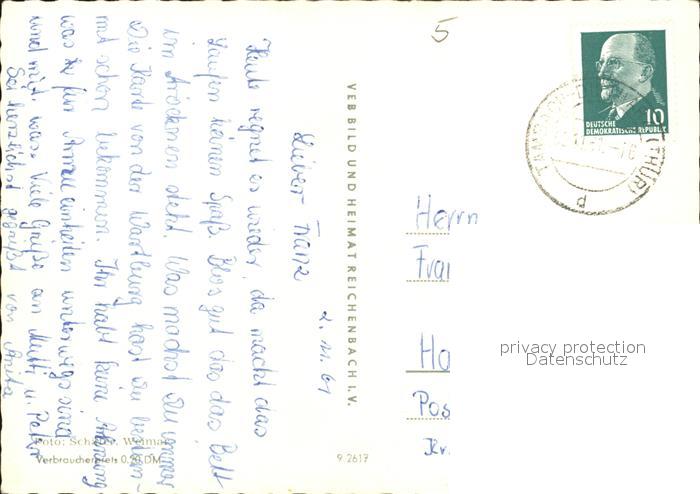 5
DEUTSCHE
DEMOKRATISCHE REPUBLIK
10
(THÜR)
d
2. 11. 61
Lieber Franz
Heute regnet es wieder, da macht das
laufen keinen Spaß. Blos gut das das Bett
im trockenen steht. Was machst Du immer
Die Karte von der Wartburg hast Du bestim-
mt schon bekommen. Ihr habt keine Ahnung
was für Armeeeinheiten unterwegs sind
und Viele Grüße an Mutti u. Peter
Sei herzlichst gegrüßt von Anita
VEB BILD UND HEIMAT REICHENBACH I. V.
Herrn
Fra
Ho
Pos
Kr.
privacy protection
Datenschutz
Foto: Schäfer, Weimar
Verbraucherpreis 0,20 DM
9.2617